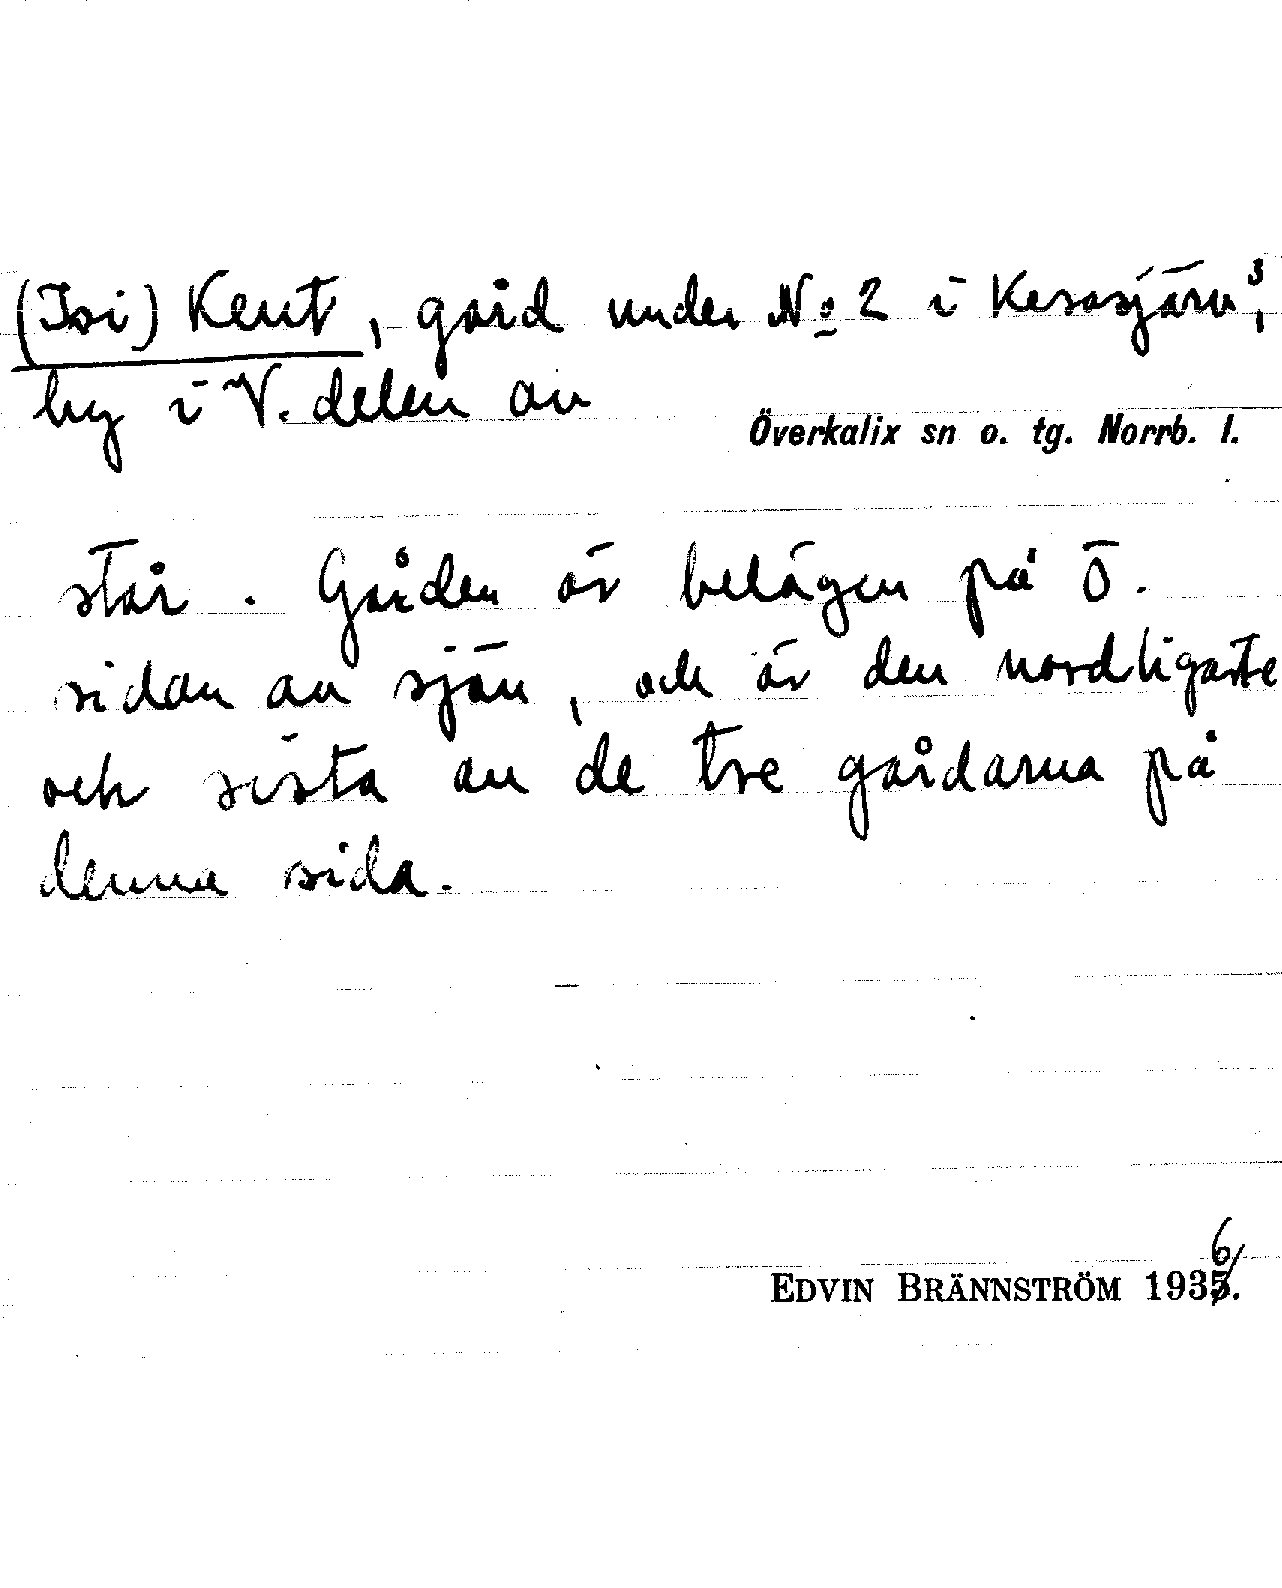 (Isi) Kent, gård under No 2 i Kesasjärv³,
by i V. delen av
Överkalix sn o. tg. Norrb. l.
står. Gården är belägen på Ö.
sidan av sjön, och är den nordligaste
och sista av de tre gårdarna på
denna sida.
6
EDVIN BRÄNNSTRÖM 1935.